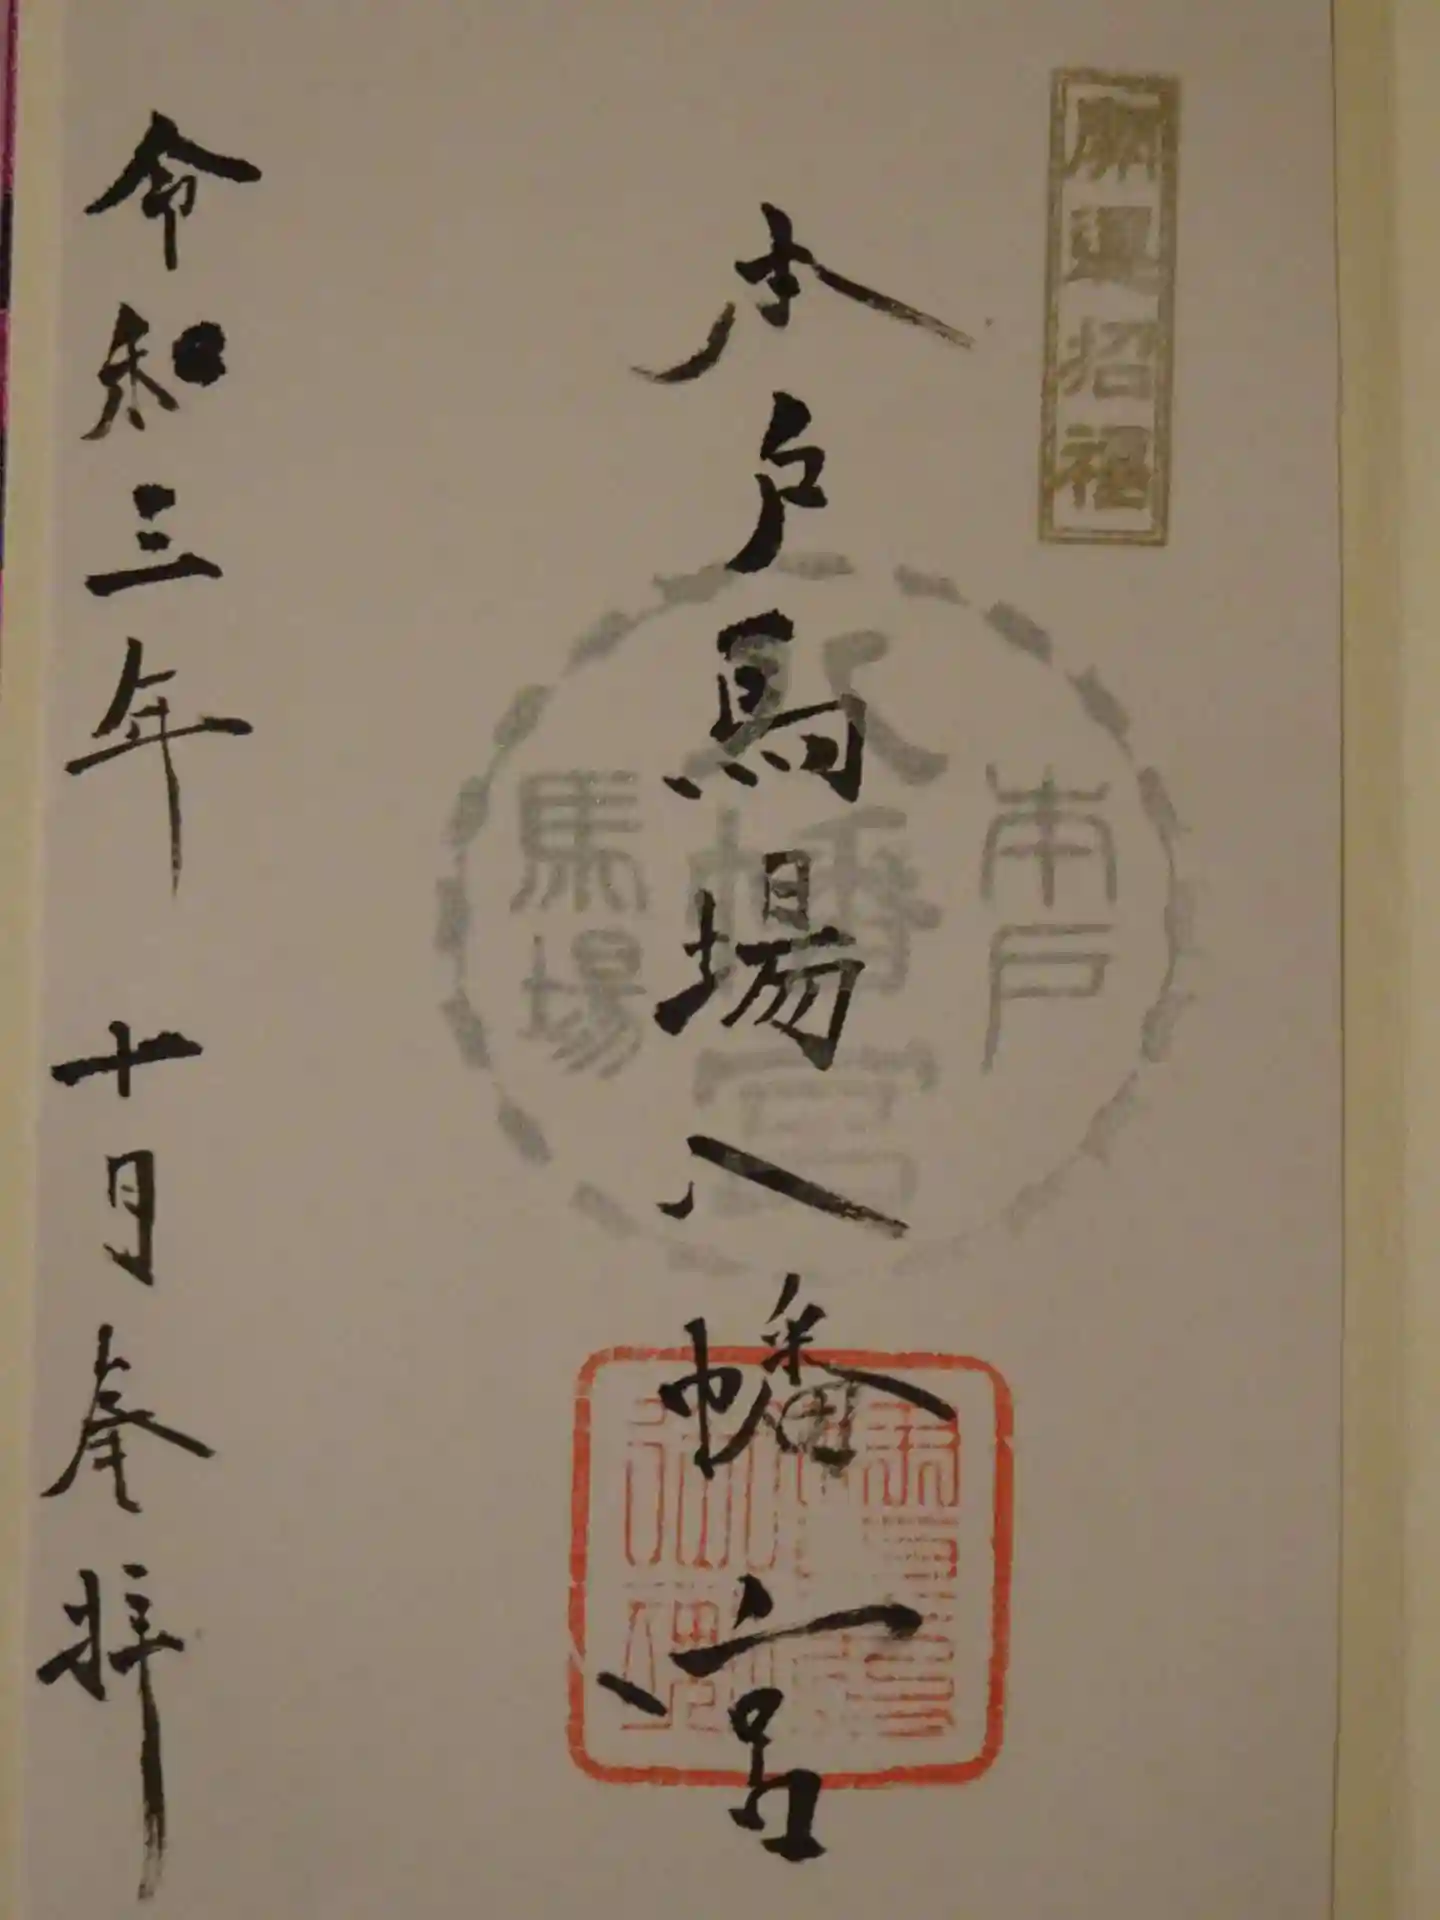 開運招福
本戸馬場八幡宮
本戸
八幡宮
馬場
令和三年 十月参拝